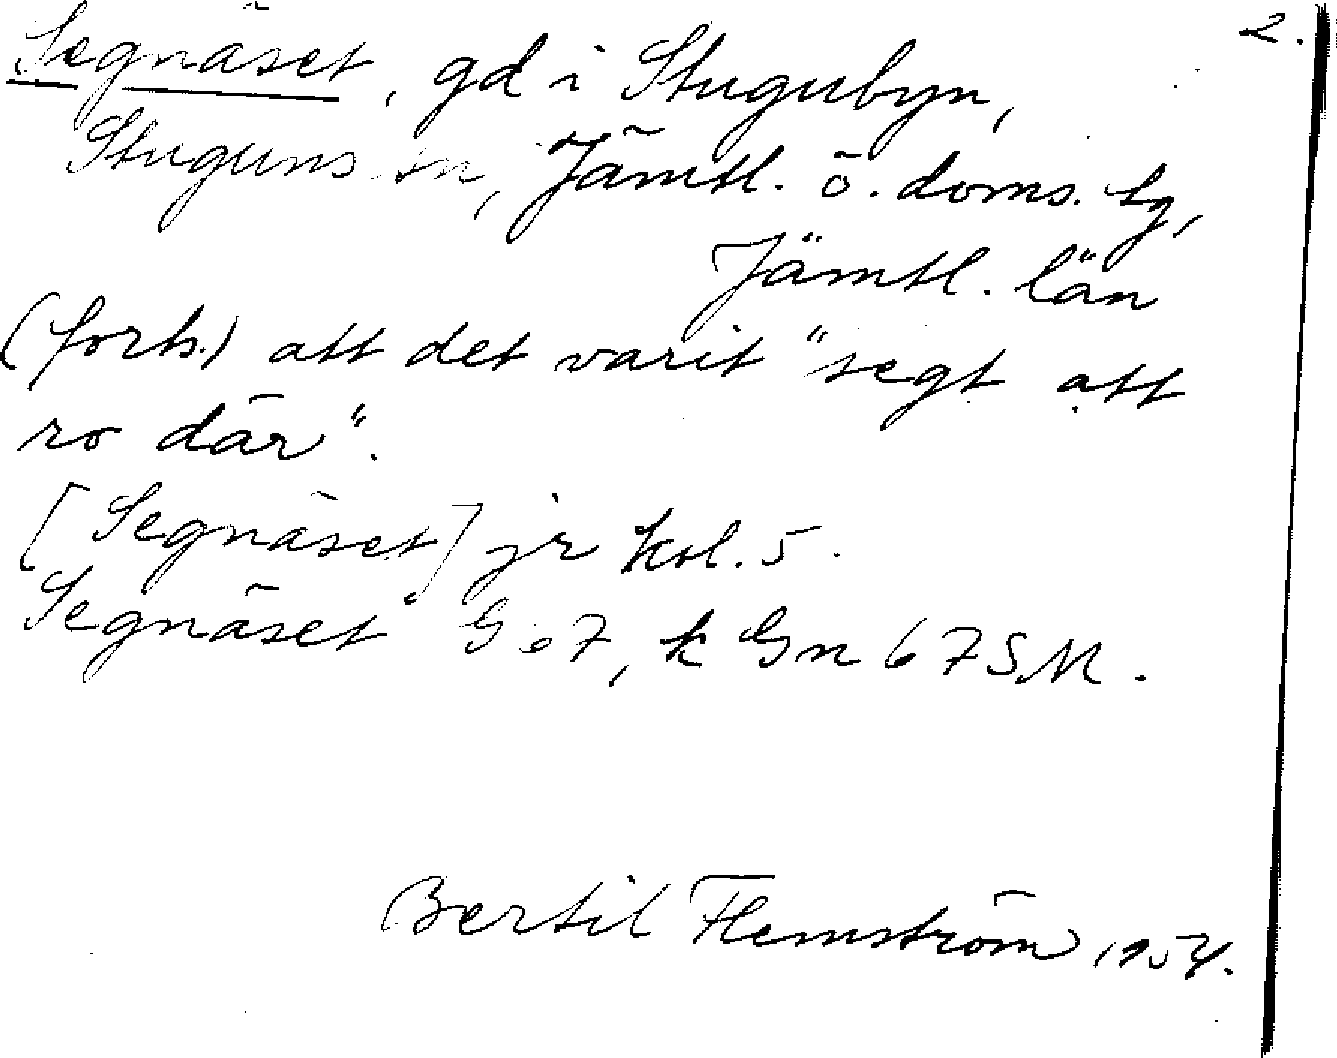 2.
Segnäset, gd i Stugubyn,
Stuguns sn, Jämtl. ö. doms. tg,
Jämtl. län
(forts.) att det varit "segt att
ro där".
[Segnäset] jr kol. 5.
Segnäset G:o7, k Gn 67SM.
Bertil Flemström 1954.